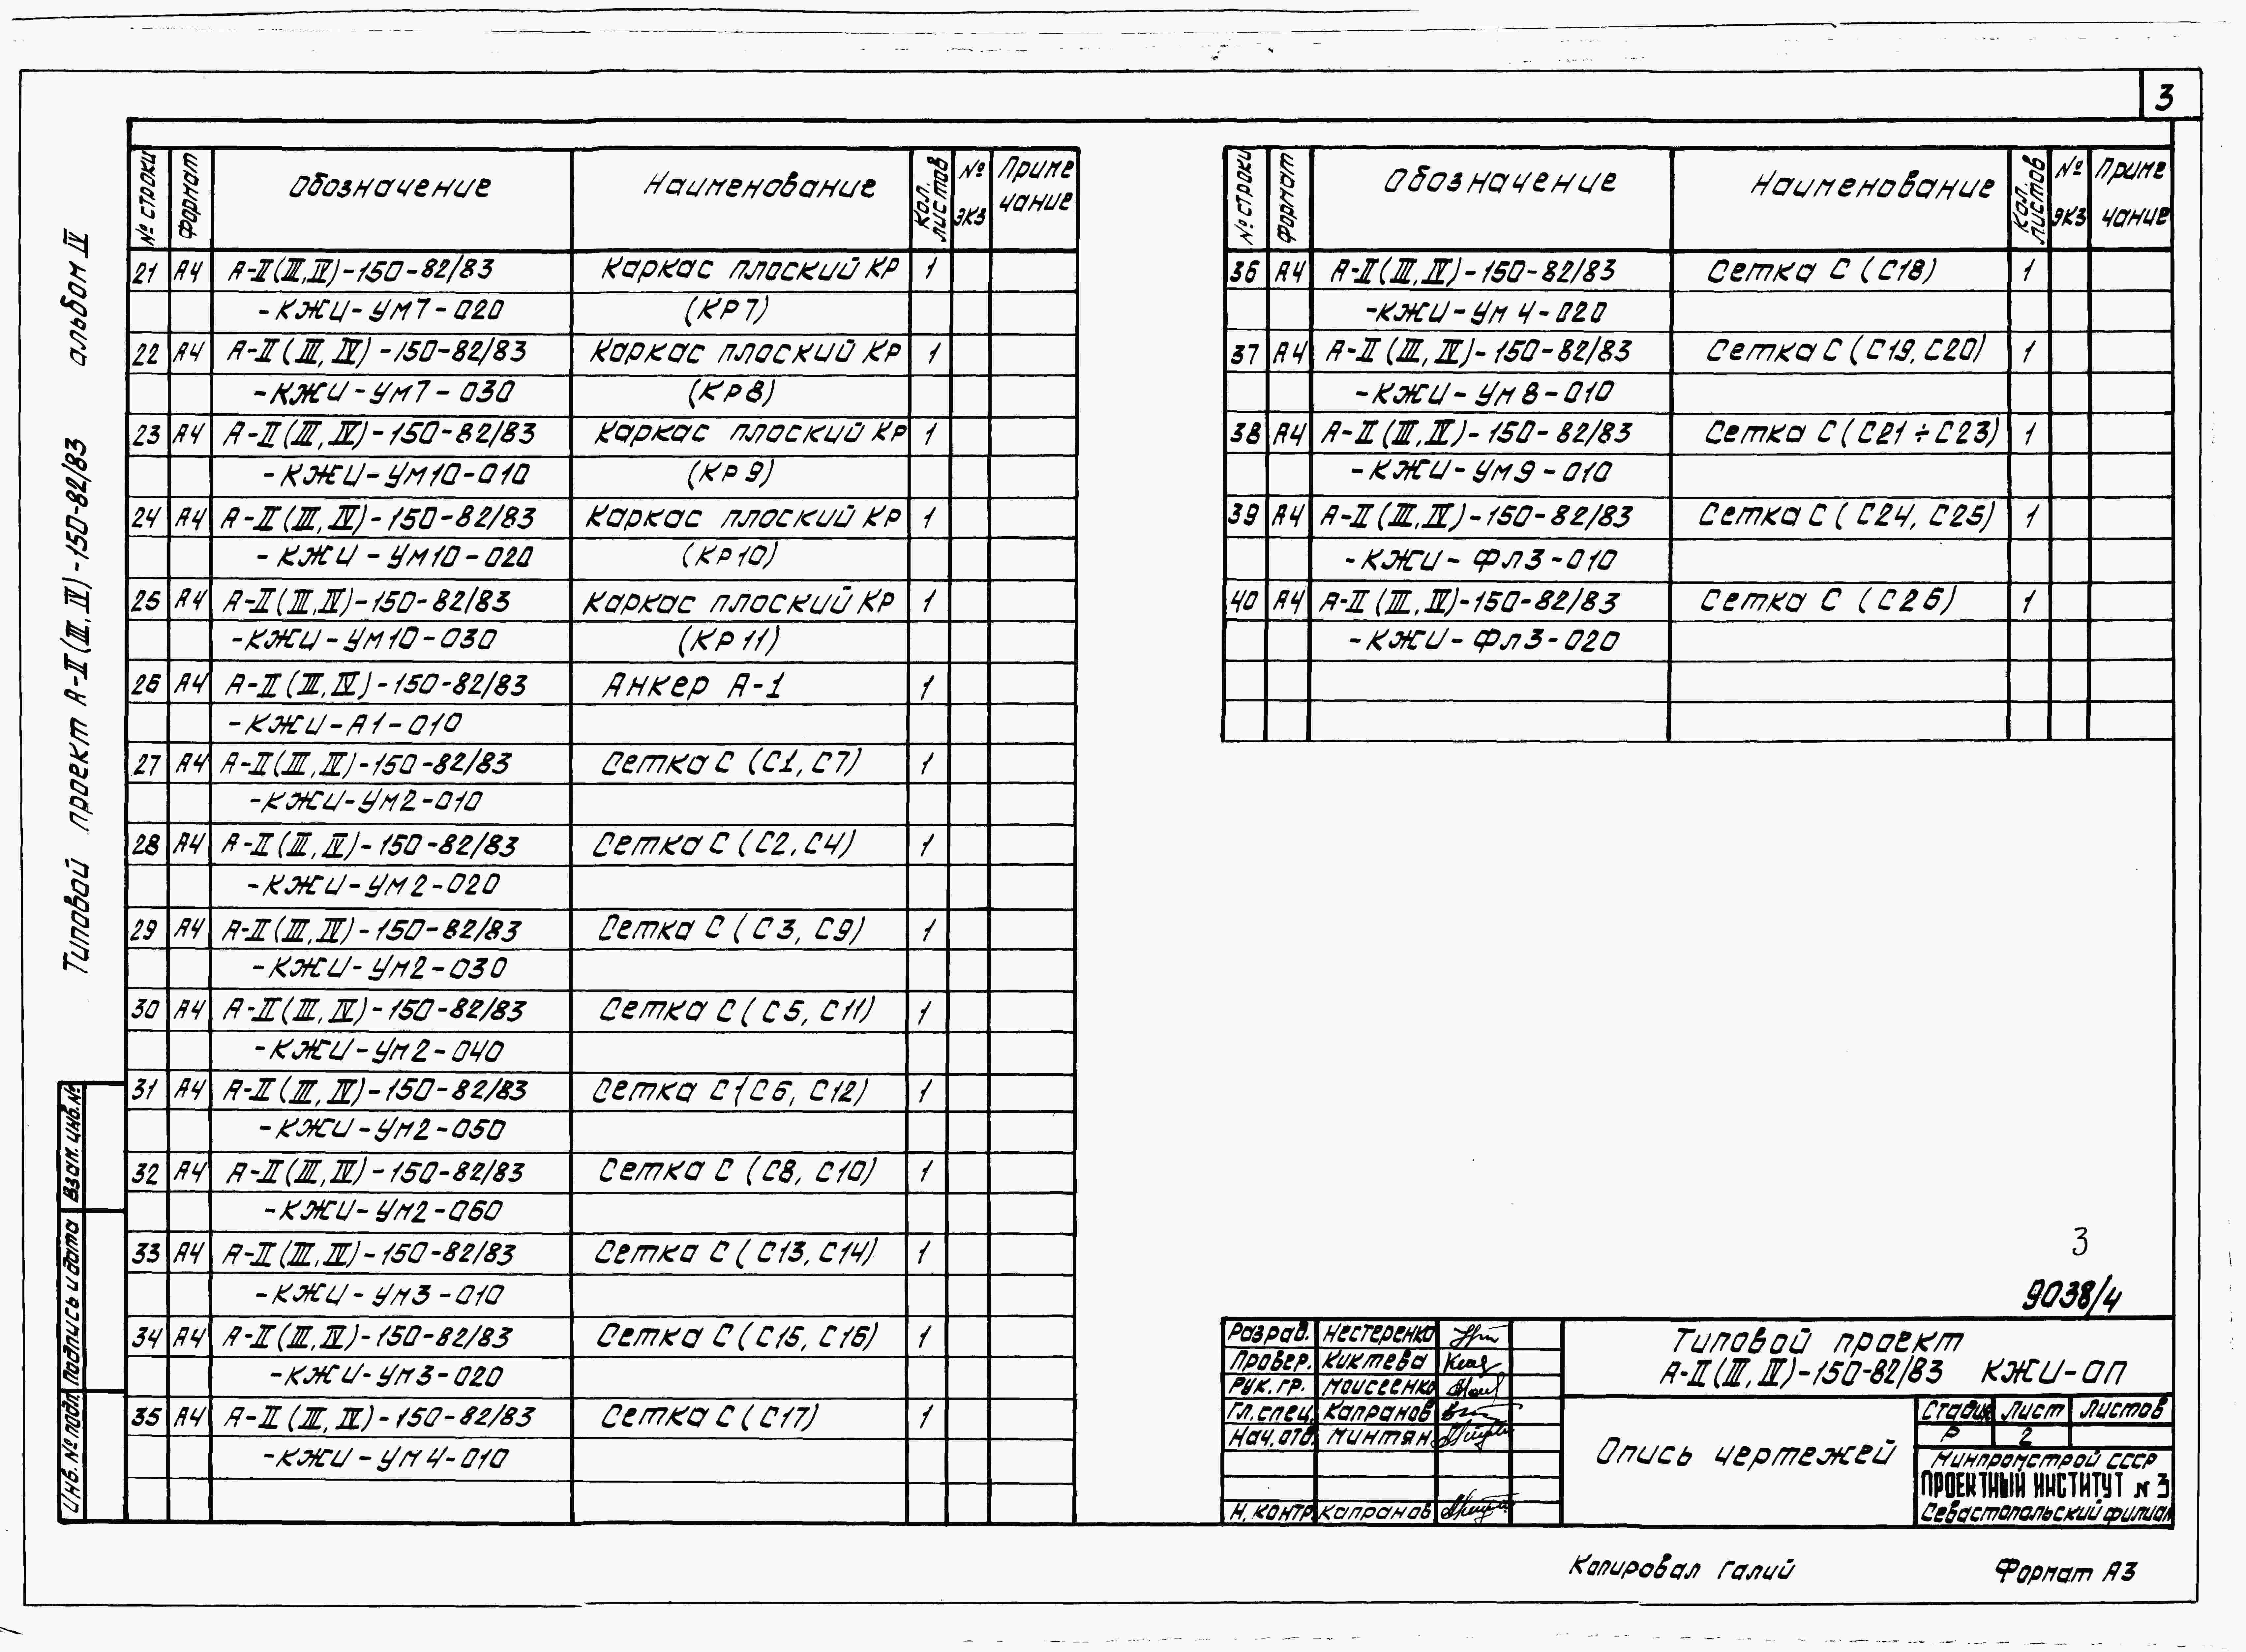 3
Типовой проект А-II (III, IV) -150-82/83 альбом IV
№ строки Формат Обозначение Наименование Кол. листов № экз Приме чание
21 А4 А-II (III, IV) -150-82/83 Каркас плоский КР 1
-КЖИ-УМ7-020 (КР7)
22 А4 А-II (III, IV) -150-82/83 Каркас плоский КР 1
-КЖИ-УМ7-030 (КР8)
23 А4 А-II (III, IV) -150-82/83 Каркас плоский КР 1
-КЖИ-УМ10-010 (КР9)
24 А4 А-II (III, IV) -150-82/83 Каркас плоский КР 1
-КЖИ-УМ10-020 (КР10)
25 А4 А-II (III, IV) -150-82/83 Каркас плоский КР 1
-КЖИ-УМ10-030 (КР11)
26 А4 А-II (III, IV) -150-82/83 Анкер А-1 1
-КЖИ-А1-010
27 А4 А-II (III, IV) -150-82/83 Сетка С (С1, С7) 1
-КЖИ-УМ2-010
28 А4 А-II (III, IV) -150-82/83 Сетка С (С2, С4) 1
-КЖИ-УМ2-020
29 А4 А-II (III, IV) -150-82/83 Сетка С (С3, С9) 1
-КЖИ-УМ2-030
30 А4 А-II (III, IV) -150-82/83 Сетка С (С5, С11) 1
-КЖИ-УМ2-040
31 А4 А-II (III, IV) -150-82/83 Сетка С (С6, С12) 1
-КЖИ-УМ2-050
32 А4 А-II (III, IV) -150-82/83 Сетка С (С8, С10) 1
-КЖИ-УМ2-060
33 А4 А-II (III, IV) -150-82/83 Сетка С (С13, С14) 1
-КЖИ-УМ3-010
34 А4 А-II (III, IV) -150-82/83 Сетка С (С15, С16) 1
-КЖИ-УМ3-020
35 А4 А-II (III, IV) -150-82/83 Сетка С (С17) 1
-КЖИ-УМ4-010
№ строки Формат Обозначение Наименование Кол. листов № экз Приме чание
36 А4 А-II (III, IV) -150-82/83 Сетка С (С18) 1
-КЖИ-УМ4-020
37 А4 А-II (III, IV) -150-82/83 Сетка С (С19, С20) 1
-КЖИ-УМ8-010
38 А4 А-II (III, IV) -150-82/83 Сетка С (С21÷С23) 1
-КЖИ-УМ9-010
39 А4 А-II (III, IV) -150-82/83 Сетка С (С24, С25) 1
-КЖИ-Фл3-010
40 А4 А-II (III, IV) -150-82/83 Сетка С (С26) 1
-КЖИ-Фл3-020
Инв. № подл. Подпись и дата Взам. инв. №
3
9038/4
Разраб. Нестеренко
Провер. Киктева
Рук. гр. Моисеенко
Гл. спец. Капранов
Нач. отд. Минтян
Н. контр. Капранов
Типовой проект
А-II (III, IV) -150-82/83 КЖИ-ОП
Опись чертежей
Стадия Лист Листов
Р 2
Минпромстрой СССР
ПРОЕКТНЫЙ ИНСТИТУТ № 3
Севастопольский филиал
Копировал Галий Формат А3